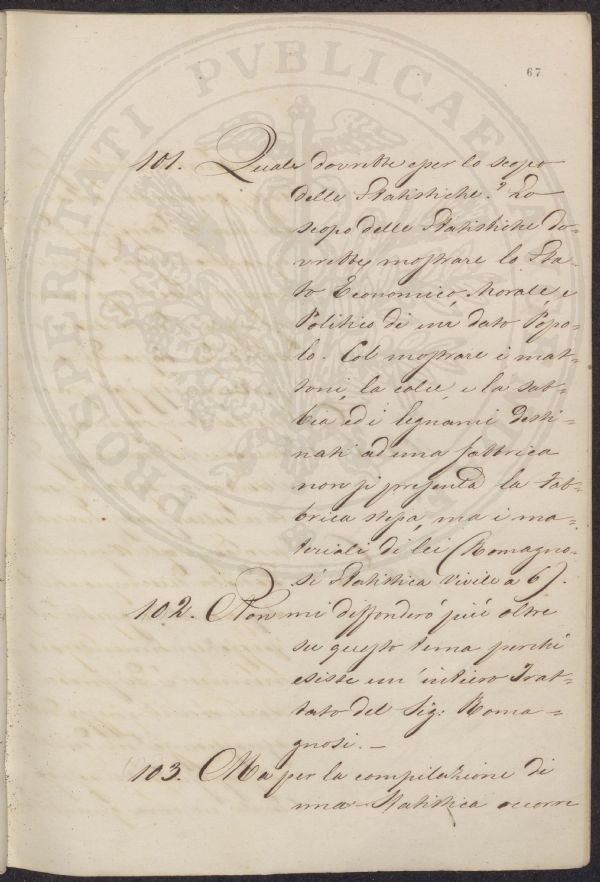 67
101. Quale dovrebbe esser lo scopo
delle Statistiche? Lo
scopo delle Statistiche do-
vrebbe mostrare lo Sta-
to Economico, Morale, e
Politico di un dato Popo-
lo. Col mostrare i mat-
toni, la calce, e la sab-
bia ed i legnami desti-
nati ad una fabbrica
non si presenta la Fab-
brica stessa, ma i ma-
teriali di lei (Romagno-
si Statistica Civile a 6).
102. Non mi diffonderò più oltre
su questo tema perché
esiste un' intiero Trat-
tato del Sig: Roma-
gnosi. —
103. Ma per la compilazione di
una Statistica occorre
PROSPERITATI PVBLICAE